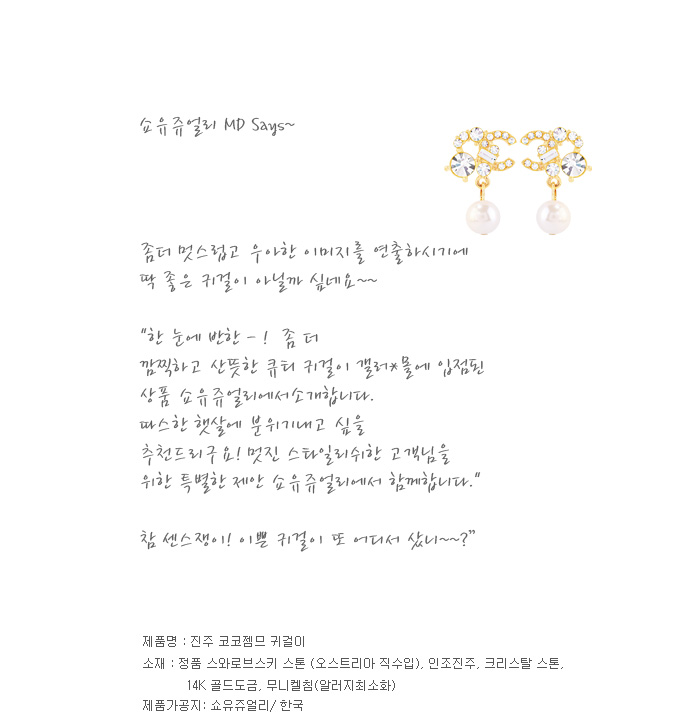 쇼유쥬얼리 MD Says~
좀더 멋스럽고 우아한 이미지를 연출하시기에
딱 좋은 귀걸이 아닐까 싶네요~~
"한 눈에 반한 - ! 좀 더
깜찍하고 산뜻한 큐티 귀걸이 갤러*몰에 입점된
상품 쇼유쥬얼리에서소개합니다.
따스한 햇살에 분위기내고 싶을
추천드리구요! 멋진 스타일리쉬한 고객님을
위한 특별한 제안 쇼유쥬얼리에서 함께합니다."
참 센스쟁이! 이쁜 귀걸이 또 어디서 샀니~~?"
제품명 : 진주 코코젬므 귀걸이
소재 : 정품 스와로브스키 스톤 (오스트리아 직수입), 인조진주, 크리스탈 스톤,
14K 골드도금, 무니켈침(알러지최소화)
제품가공지: 쇼유쥬얼리/ 한국